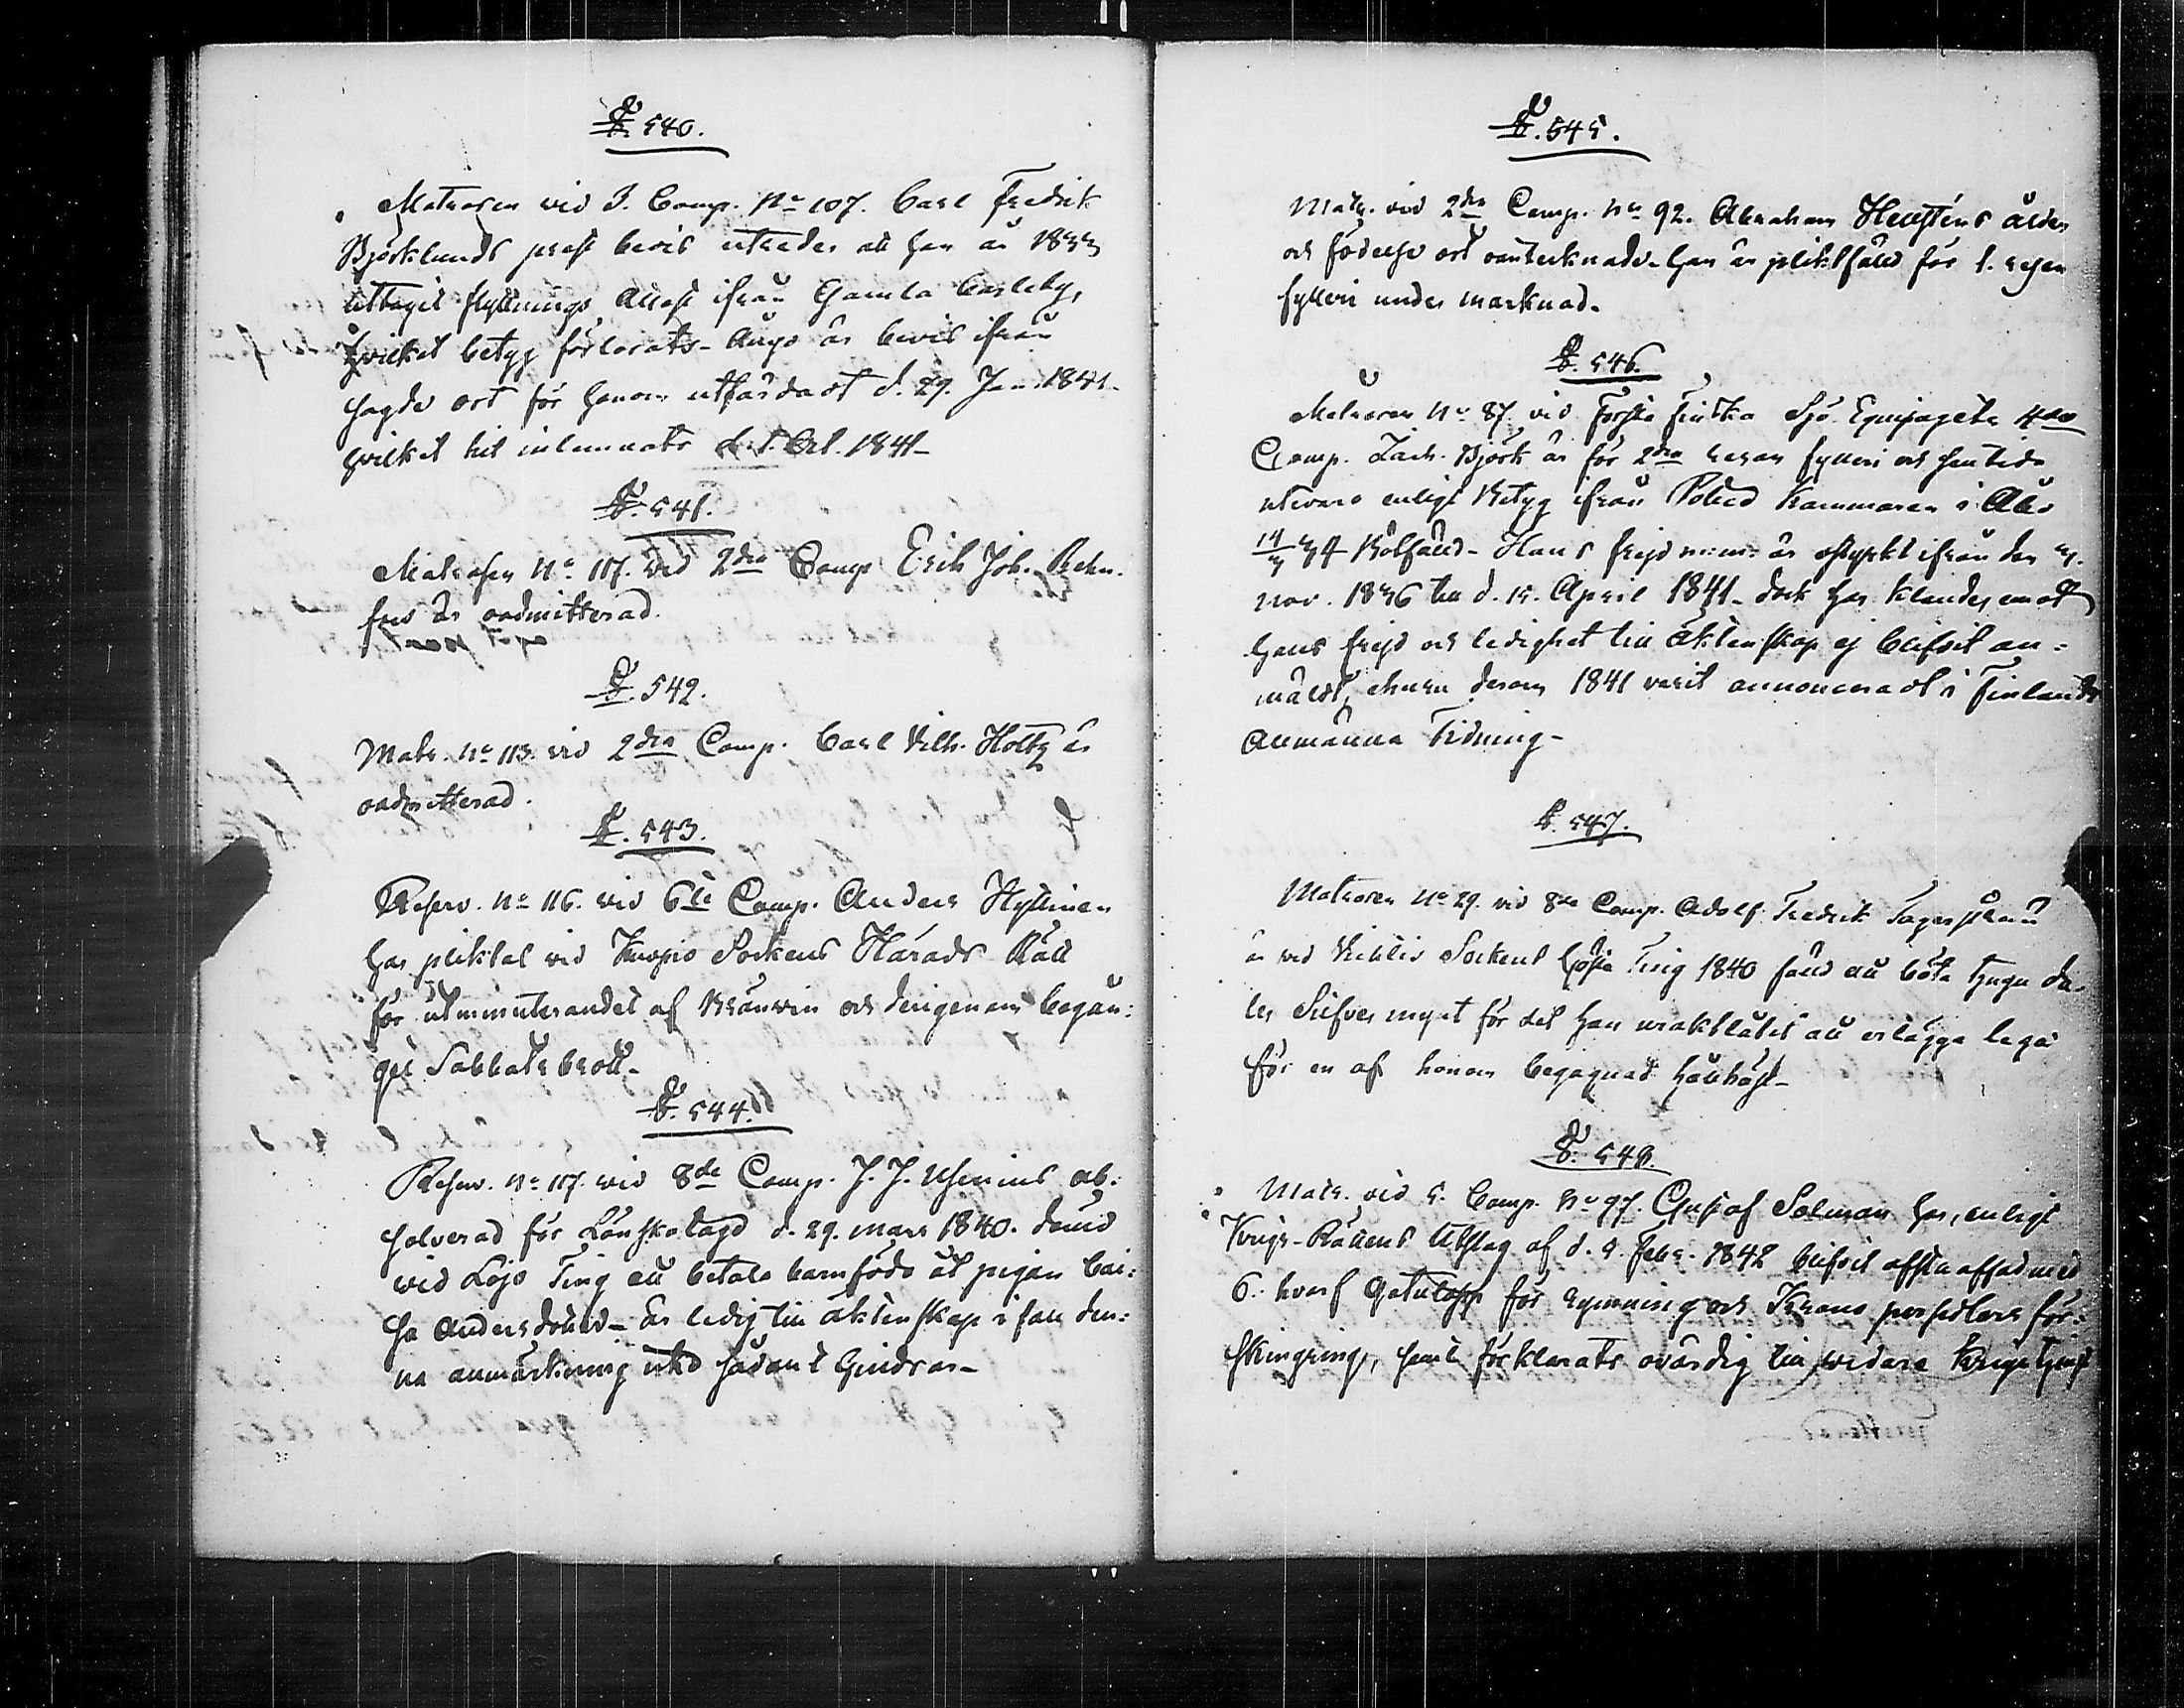 §. 540.
Matrosen wid 3. Comp. No 107. Carl Fredrik
Björklunds prest bevis utreder att han år 1833
uttagit flyttnings Attest ifrån Gamla Carleby,
hvilket betyg förlorats. Ange är bevis ifrån
sagde ort för honom utfärdadt d. 29. Jan. 1841.
hvilket hit inlemnats d. 1. Oct. 1841-
§. 541.
Matrosen No 117. wid 2dra Comp Erik Joh.
är oadmitterad.
§. 542.
Matr. No 113. vid 2dra Comp. Carl Vilh. Holtz är
oadmitterad.
§. 543.
Reserv. No 116. wid 6te Comp. Anders Hyttinen
har pliktat wid Kuopio Sockens Härads Rätt
för utminuterandet af Bränwin och derigenom began:
get Sabbatsbrott-
§. 544.
Reserv. No 117. wid 8de Comp. J. J. Usenius ab:
solverad för Lönskaläge d. 29. mars 1840. dömd
wid Lojo Ting att betala barnföda åt pigan Cai:
sa Andersdotter- är ledig till äktenskap i fall den:
na anmärkning icke sådant hindrar-
§. 545.
Matr. vid 2dra Comp. No 92. Abraham Hellsténs ålder
och födelse ort oantecknade- han är pliktfäld för 1. resan
fylleri under marknad.
§. 546.
Matrosen No 87. vid Första Finska Sjö Equipagets 4de
Comp. Zach. Björk är för 2dra resan fylleri och sentida
utevaro enligt Betyg ifrån Police Kammaren i Åbo
Bötfäld- Hans frejd m:m: är ostyrkt ifrån den
Nov. 1836 till d. 15. April 1841- dock har klander emot
hans frejd och ledighet till äktenskap ej blifvit an:
mäldt, ehuru derom 1841 varit annonceradt i Finlands
Allmänna Tidning-
§. 547.
Matrosen No 29. vid 8de Comp. Adolf Fredrik
är wid Wichtis Sockens Hösta Ting 1840 fäld att böta tjugu da-
ler Silfver mynt för det han uraktlåtit att erlägga lega
för en af honom begagnad hållhäst-
§. 548.
Matr. vid 5. Comp. No 97. Gustaf Salman har, enligt
Krigs-Rättens Utslag af d. 9. Febr. 1842 blifvit afstraffad med
6. hvarf Gatulopp för rymning och Krono persedlars för:
skingring, samt förklarats ovärdig till widare Krigstjenst